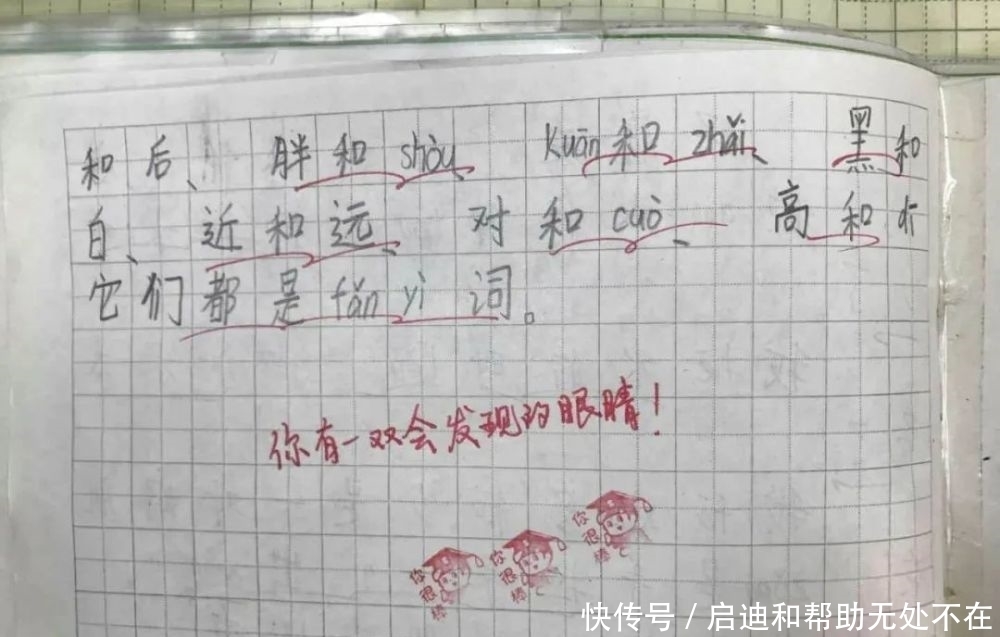 和后、胖和shòu、Kuān和zhǎi、黑和
白、近和远、对和cuò、高和
它们都是fǎn yì词。
你有一双会发现的眼睛!
你很棒
你很棒
你很棒
快传号/启迪和帮助无处不在